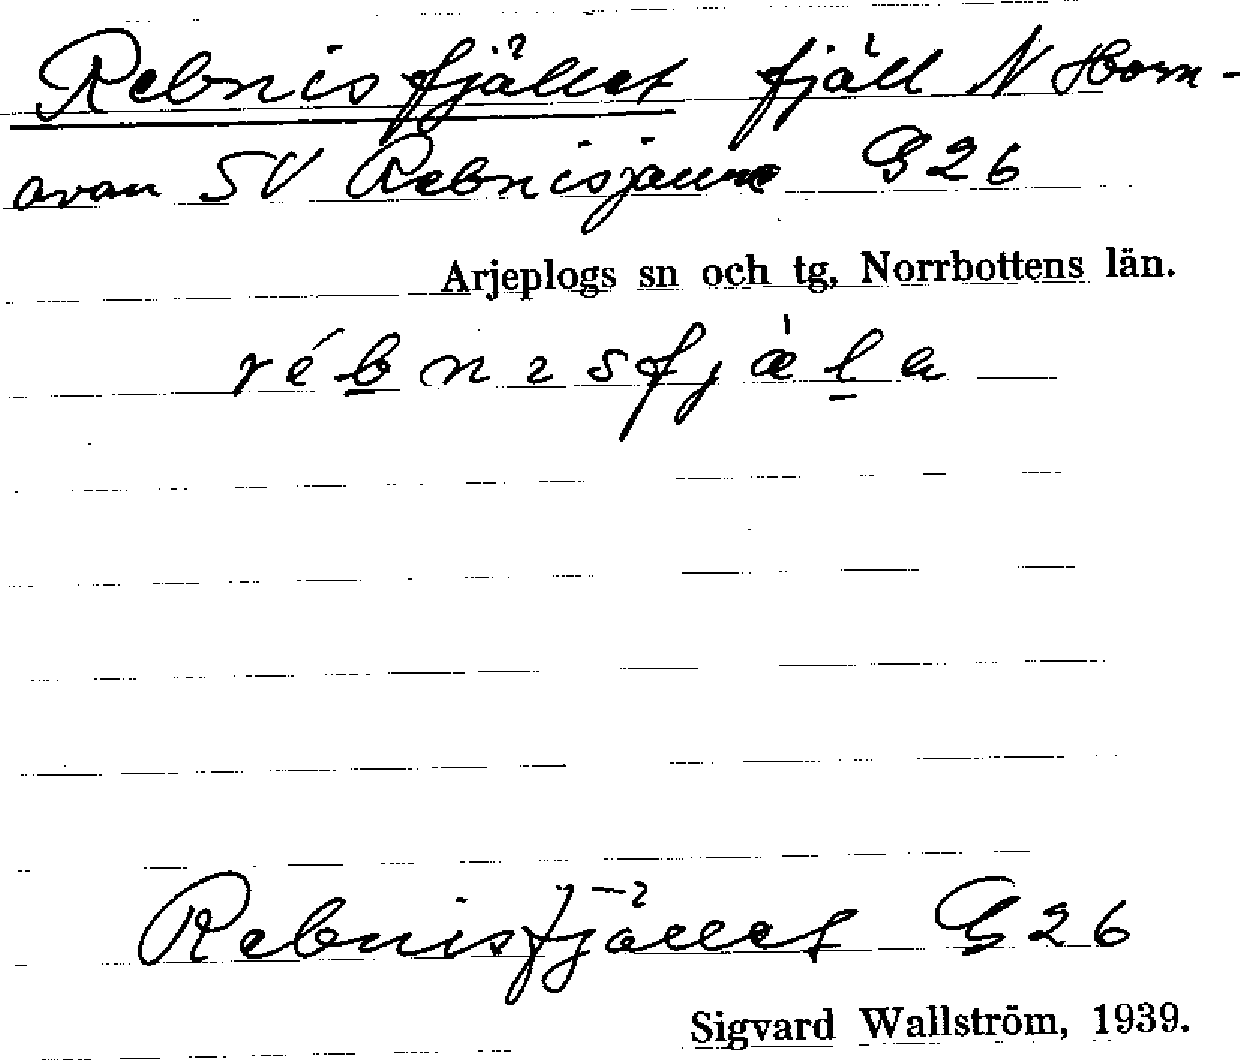 Rebnisfjället fjäll N Horn-
avan SV Rebnisjaure G26
Arjeplogs sn och tg, Norrbottens län.
rébnɪsfjæ̀la
Rebnisfjället G26
Sigvard Wallström, 1939.